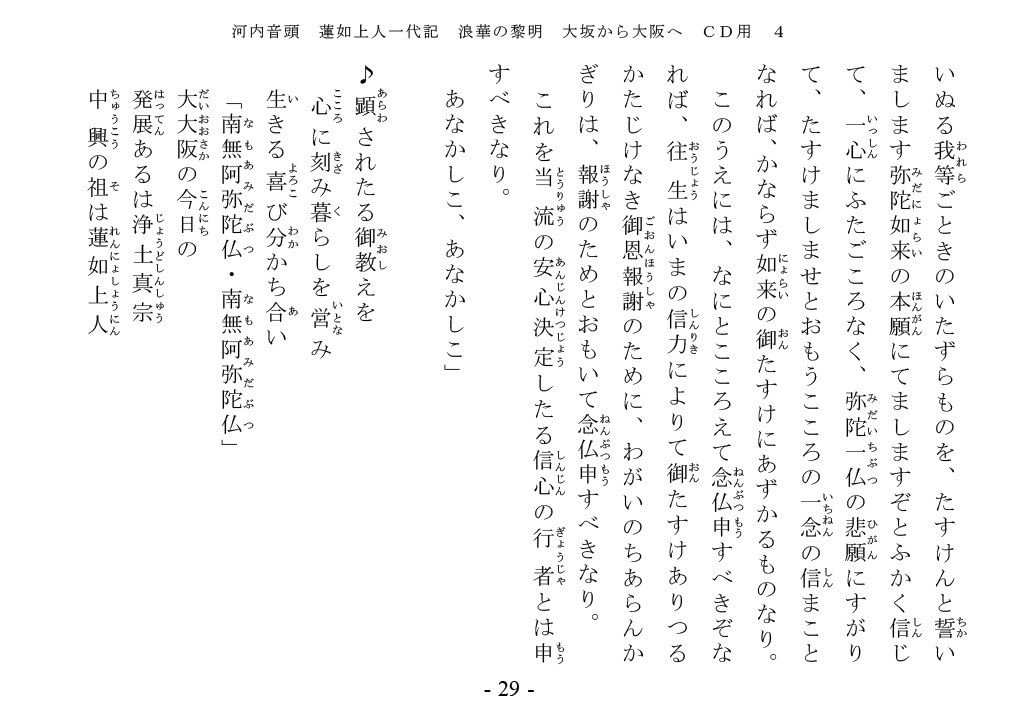 河内音頭　蓮如上人一代記　浪華の黎明　大坂から大阪へ　ＣＤ用　４
いぬる我等ごときのいたずらものを、たすけんと誓い
まします弥陀如来の本願にてましますぞとふかく信じ
て、一心にふたごころなく、弥陀一仏の悲願にすがり
て、たすけましませとおもうこころの一念の信まこと
なれば、かならず如来の御たすけにあずかるものなり。
このうえには、なにとこころえて念仏申すべきぞな
れば、往生はいまの信力によりて御たすけありつる
かたじけなき御恩報謝のために、わがいのちあらんか
ぎりは、報謝のためとおもいて念仏申すべきなり。
これを当流の安心決定したる信心の行者とは申
すべきなり。
あなかしこ、あなかしこ」
♪顕されたる御教えを
心に刻み暮らしを営み
生きる喜び分かち合い
「南無阿弥陀仏・南無阿弥陀仏」
大大阪の今日の
発展あるは浄土真宗
中興の祖は蓮如上人
- 29 -